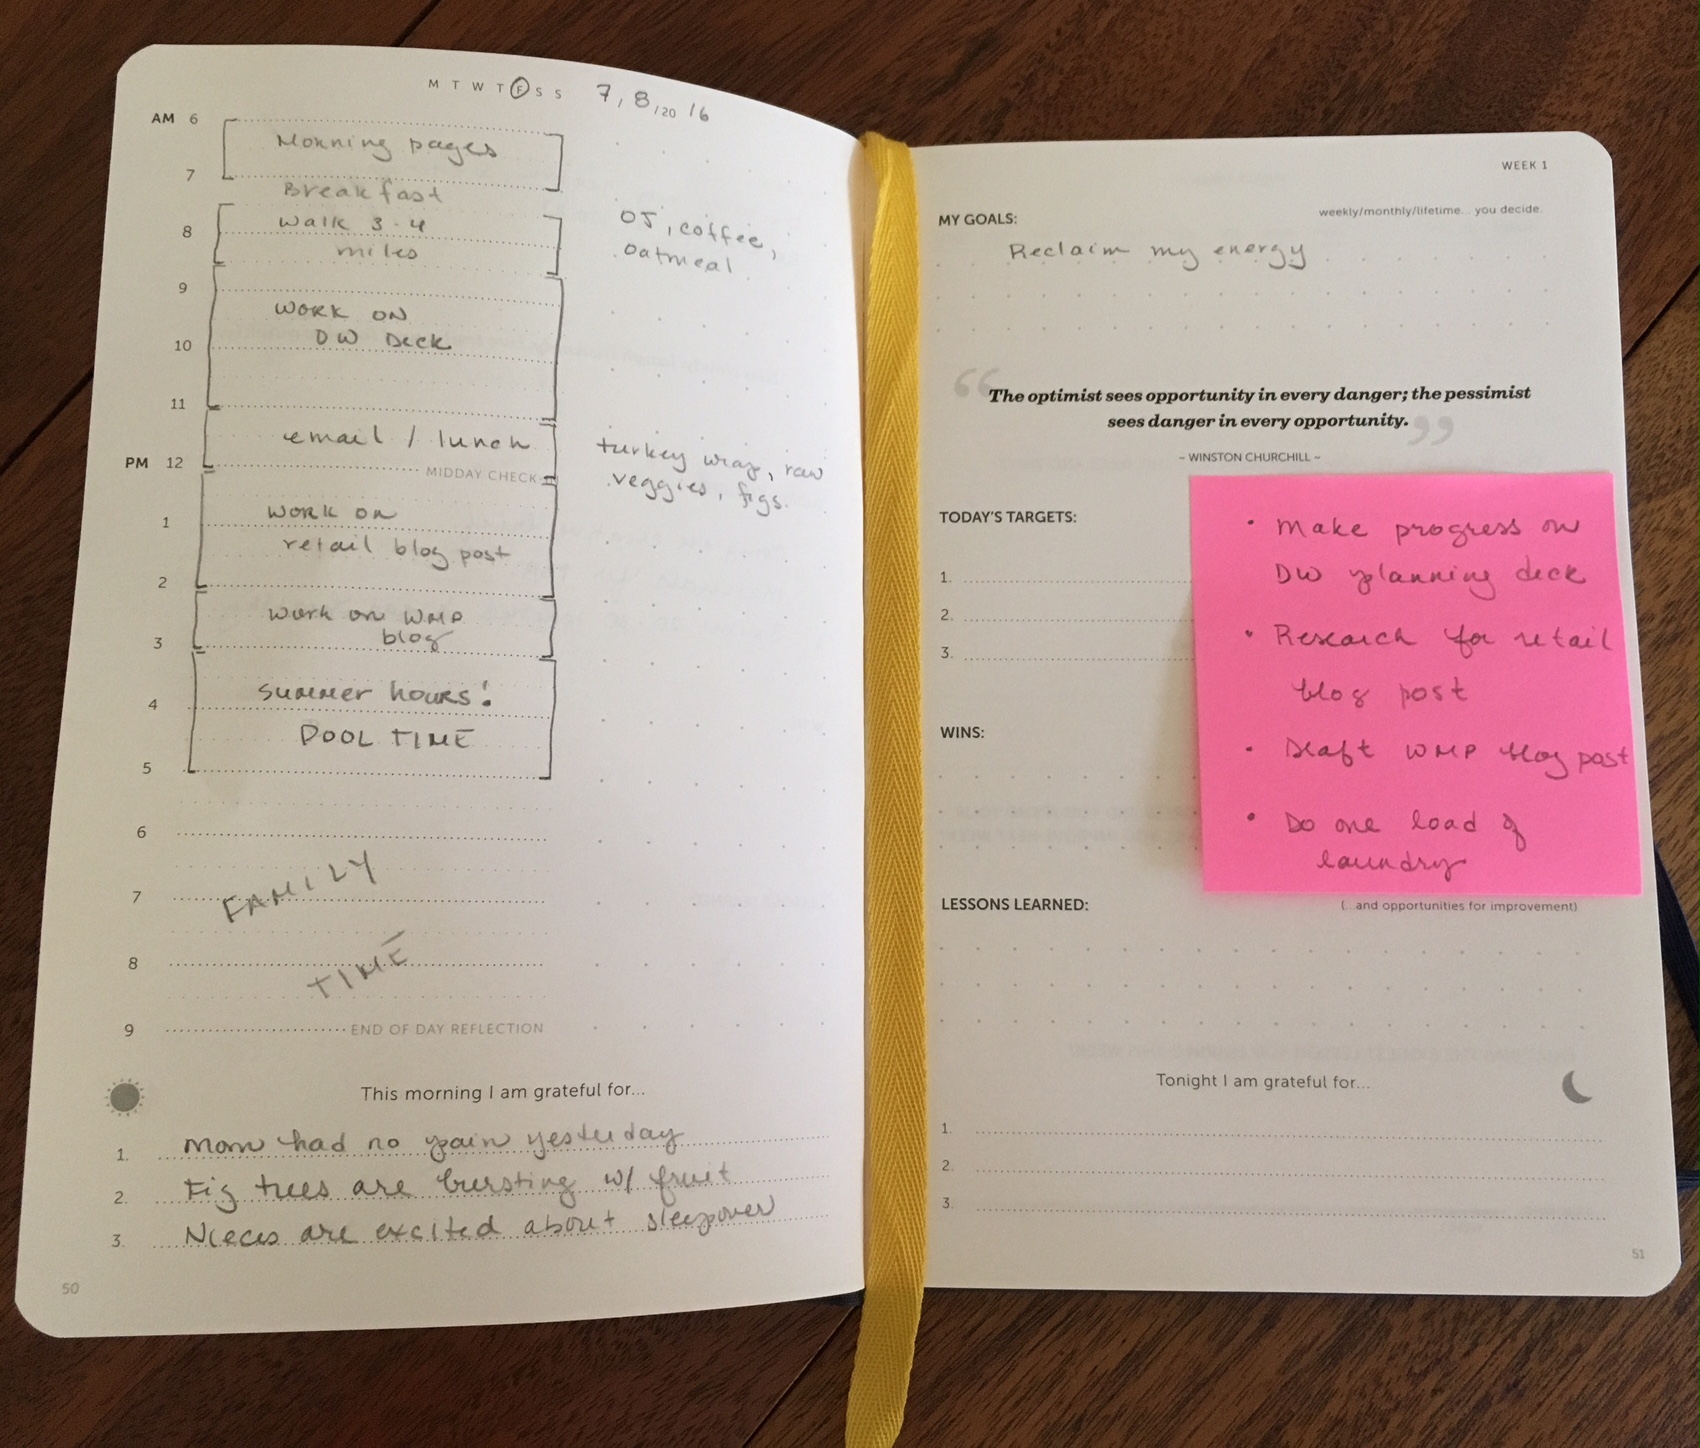 M T W T F S S 7, 8 /20 16
AM 6
Morning pages
7
Breakfast
Walk 3-4
8
miles
OJ, coffee,
oatmeal
9
WORK ON
DW Deck
10
11
email / lunch
PM 12
MIDDAY CHECK-IN
turkey wrap, raw
veggies, figs.
Work on
1
retail blog post
2
Work on WMP
blog
3
Summer hours!
4
POOL TIME
5
6
FAMILY
7
8
TIME
9
END OF DAY REFLECTION
This morning I am grateful for...
1. Mom had no pain yesterday
2. Fig trees are bursting w/ fruit
3. Nieces are excited about sleepover
50
WEEK 1
MY GOALS: weekly/monthly/lifetime... you decide.
Reclaim my energy
“The optimist sees opportunity in every danger; the pessimist
sees danger in every opportunity.”
~ WINSTON CHURCHILL ~
TODAY'S TARGETS:
1.
2.
3.
• Make progress on
DW planning deck
• Research for retail
blog post
• Draft WMP blog post
• Do one load of
laundry
WINS:
LESSONS LEARNED: (...and opportunities for improvement)
Tonight I am grateful for...
1.
2.
3.
51